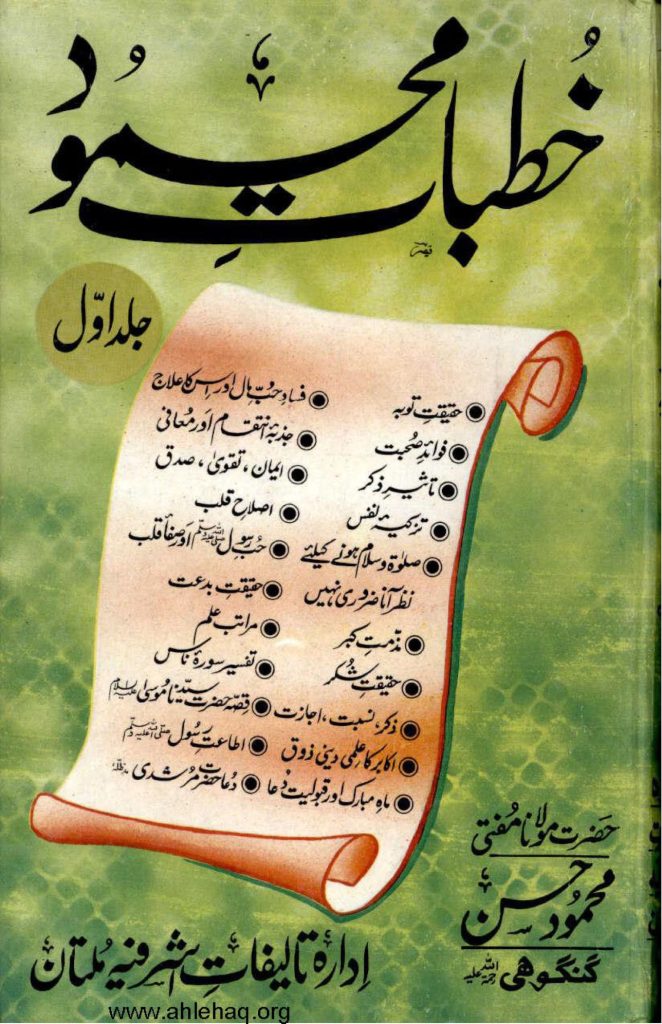 خطباتِ محمود
قیصر
جلد اوّل
حقیقتِ توبہ
فوائدِ صحبت
تاثیرِ ذکر
تزکیۂ نفس
صلوٰۃ وسلام ہونے کیلئے
نظر آنا ضروری نہیں
مذمتِ کبر
حقیقتِ شکر
ذکر، نسبت، اجازت
اکابر کا علمی دینی ذوق
ماہِ مبارک اور قبولیت دُعا
فسادِ حُبِّ مال اور اس کا علاج
جذبۂ انتقام اور معافی
ایمان، تقویٰ، صدق
اصلاحِ قلب
حُبِ رسول ﷺ اور صفأ قلب
حقیقتِ بدعت
مراتبِ علم
تفسیر سورۂ ناس
قصّہ حضرت سیّدنا موسیٰ علیہ السلام
اطاعتِ رسول صلی اللہ علیہ وسلم
دُعا حضرت مرشدی مدظلہٗ
حضرت مولانا مفتی
محمود حسن
گنگوھی رحمۃ اللہ علیہ
ادارہ تالیفاتِ اشرفیہ مُلتان
www.ahlehaq.org